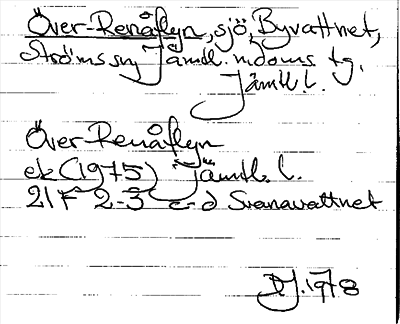 Över-Renåflyn, sjö, Byvattnet,
Ströms sn Jämtl. ndoms tg.
Jämtl l.
Över-Renåflyn
ek (1975) Jämtl. l.
21F 2-3 c-d Svanavattnet
DJ. 1978